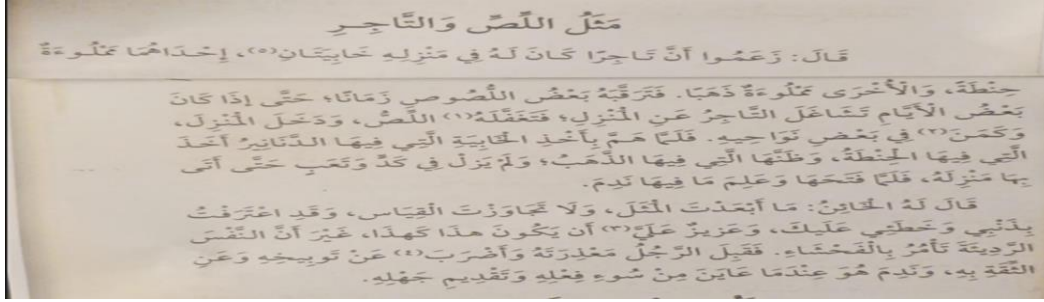 مَثَلُ اللِّصِّ وَالتَّاجِرِ
قَالَ: زَعَمُوا أَنَّ تَاجِرًا كَانَ لَهُ فِي مَنْزِلِهِ خَابِيَتَانِ(٥)، إِحْدَاهُمَا مَمْلُوءَةٌ
حِنْطَةً، وَالْأُخْرَى مَمْلُوءَةٌ ذَهَبًا. فَتَرَقَّبَهُ بَعْضُ اللُّصُوصِ زَمَانًا؛ حَتَّى إِذَا كَانَ
بَعْضُ الْأَيَّامِ تَشَاغَلَ التَّاجِرُ عَنِ الْمَنْزِلِ؛ فَتَغَفَّلَهُ(١) اللِّصُّ، وَدَخَلَ الْمَنْزِلَ،
وَكَمَنَ(٢) فِي بَعْضِ نَوَاحِيهِ. فَلَمَّا هَمَّ بِأَخْذِ الْخَابِيَةِ الَّتِي فِيهَا الدَّنَانِيرُ أَخَذَ
الَّتِي فِيهَا الْحِنْطَةُ، وَظَنَّهَا الَّتِي فِيهَا الذَّهَبُ؛ وَلَمْ يَزَلْ فِي كَدٍّ وَتَعَبٍ حَتَّى أَتَى
بِهَا مَنْزِلَهُ، فَلَمَّا فَتَحَهَا وَعَلِمَ مَا فِيهَا نَدِمَ.
قَالَ لَهُ الْخَائِنُ: مَا أَبْعَدْتَ الْمَثَلَ، وَلَا تَجَاوَزْتَ الْقِيَاسَ، وَقَدِ اعْتَرَفْتُ
بِذَنْبِي وَخَطَئِي عَلَيْكَ، وَعَزِيزٌ عَلَيَّ(٣) أَن يَكُونَ هذَا كَهذَا، غَيْرَ أَنَّ النَّفْسَ
الرَّدِيئَةَ تَأْمُرُ بِالْفَحْشَاءِ. فَقَبِلَ الرَّجُلُ مَعْذِرَتَهُ وَأَضْرَبَ(٤) عَنْ تَوْبِيخِهِ وَعَنِ
الثِّقَةِ بِهِ، وَنَدِمَ هُوَ عِنْدَمَا عَايَنَ مِنْ سُوءِ فِعْلِهِ وَتَقْدِيمِ جَهْلِهِ.